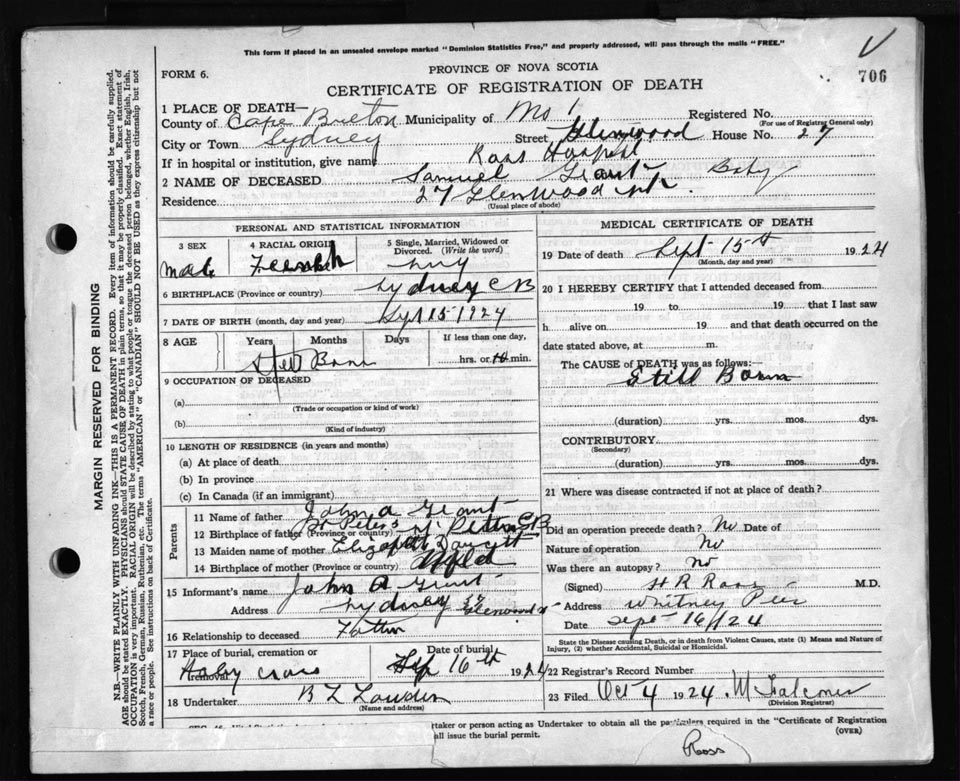 This form if placed in an unsealed envelope marked "Dominion Statistics Free," and properly addressed, will pass through the mails "FREE."
706
FORM 6.
PROVINCE OF NOVA SCOTIA
CERTIFICATE OF REGISTRATION OF DEATH
1 PLACE OF DEATH—
County of Cape Breton Municipality of Registered No.
(For use of Registrar General only)
City or Town Sydney Street Glenwood House No. 27
If in hospital or institution, give name Ross Hospital
2 NAME OF DECEASED Samuel Grant Baby
Residence 27 Glenwood
(Usual place of abode)
PERSONAL AND STATISTICAL INFORMATION
3 SEX 4 RACIAL ORIGIN 5 Single, Married, Widowed or Divorced. (Write the word)
Male
6 BIRTHPLACE (Province or country) Sydney C B
7 DATE OF BIRTH (month, day and year) Sept 15 1924
8 AGE Years Months Days If less than one day,
Still Born hrs. or min.
9 OCCUPATION OF DECEASED
(a)
(Trade or occupation or kind of work)
(b)
(Kind of industry)
10 LENGTH OF RESIDENCE (in years and months)
(a) At place of death
(b) In province
(c) In Canada (if an immigrant)
Parents
11 Name of father John A Grant
12 Birthplace of father (Province or country) St Peters C B
13 Maiden name of mother Elizabeth
14 Birthplace of mother (Province or country) Nfld
15 Informant's name John A Grant
Address Sydney 27 Glenwood St
16 Relationship to deceased Father
17 Place of burial, cremation or removal Date of burial
Holy Cross Sep 16th 1924
18 Undertaker B L
(Name and address)
MEDICAL CERTIFICATE OF DEATH
19 Date of death Sept 15th 1924
(Month, day and year)
20 I HEREBY CERTIFY that I attended deceased from
19 to 19 that I last saw
h alive on 19 and that death occurred on the
date stated above, at m.
The CAUSE of DEATH was as follows:
Still Born
(duration) yrs. mos. dys.
CONTRIBUTORY
(Secondary)
(duration) yrs. mos. dys.
21 Where was disease contracted if not at place of death?
Did an operation precede death? No Date of
Nature of operation No
Was there an autopsy? No
(Signed) H R Ross M.D.
Address Whitney Pier
Date Sept 16/24
State the Disease causing Death, or in death from Violent Causes, state (1) Means and Nature of
Injury, (2) whether Accidental, Suicidal or Homicidal.
22 Registrar's Record Number
23 Filed Oct 4 1924. M Falconer
(Division Registrar)
rtaker or person acting as Undertaker to obtain all the particulars required in the "Certificate of Registration
all issue the burial permit.
(OVER)
Ross
MARGIN RESERVED FOR BINDING
N.B.—WRITE PLAINLY WITH UNFADING INK—THIS IS A PERMANENT RECORD. Every item of information should be carefully supplied.
AGE should be stated EXACTLY. PHYSICIANS should STATE CAUSE OF DEATH in plain terms, so that it may be properly classified. Exact statement of
OCCUPATION is very important. RACIAL ORIGIN will be described by stating to what people or tongue the deceased person belonged, whether English, Irish,
Scotch, French, German, Russian, Ruthenian, etc. The terms "AMERICAN" or "CANADIAN" SHOULD NOT BE USED as they express citizenship but not
a race or people. See instructions on back of Certificate.